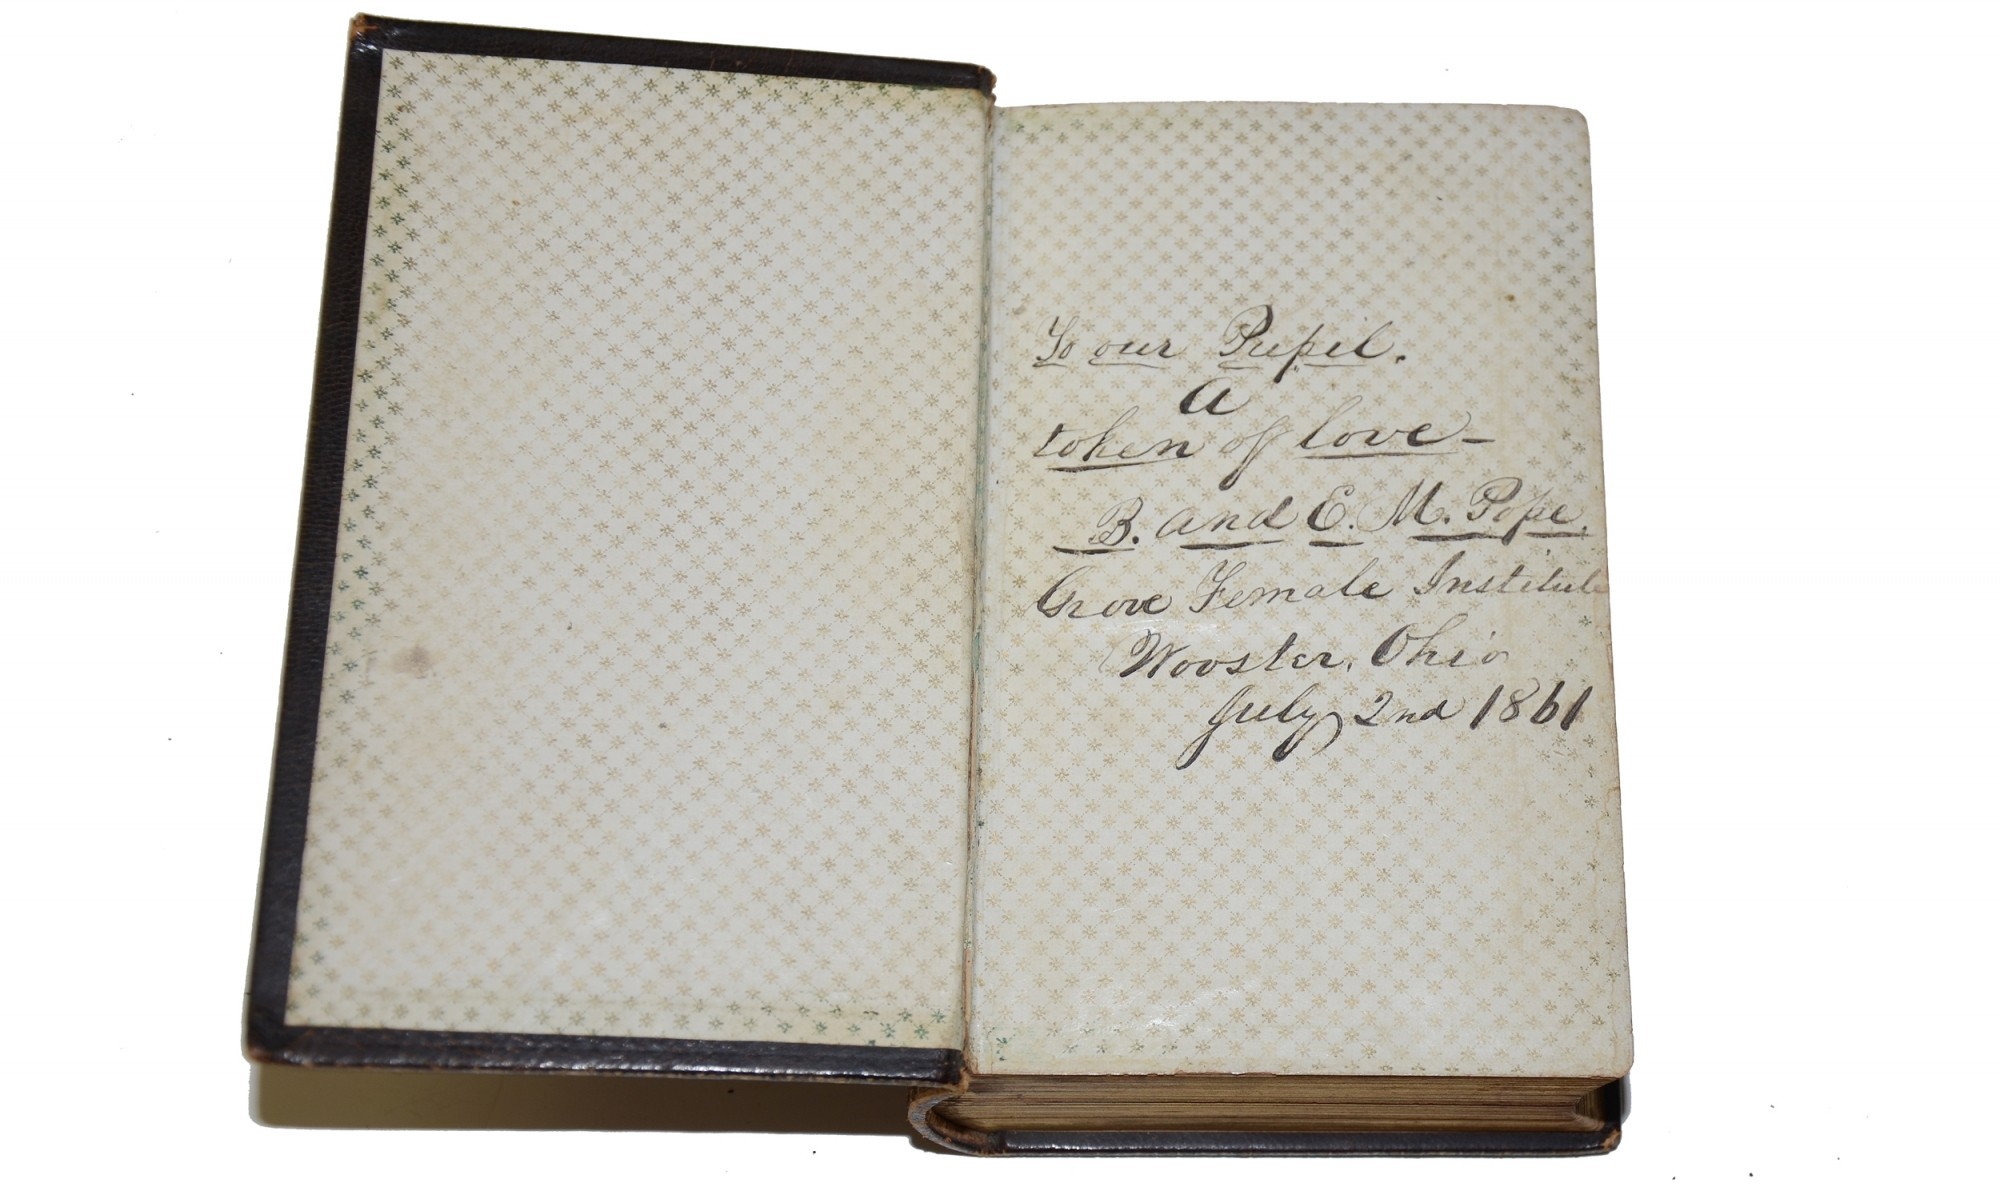 To our Pupil.
A
token of love-
B. and E. M. Pope.
Grove Female Institute
Wooster, Ohio
July 2nd 1861